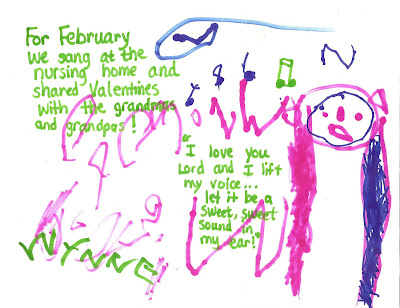 For February
we sang at the
nursing home and
shared Valentines
with the grandmas
and grandpas!
"I love you
Lord and I lift
my voice...
let it be a
sweet, sweet
sound in
my ear!"
N
WYNNE